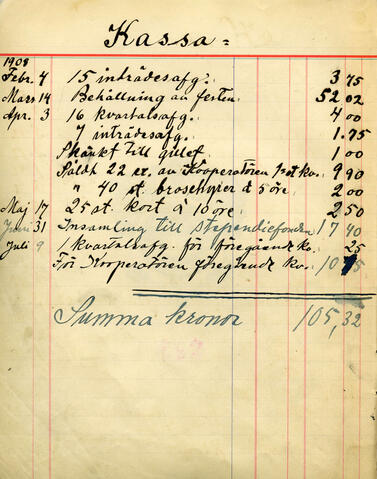 Kassa =
1908
Febr. 4 15 inträdesafg. 3 75
Mars 14 Behållning av festen 52 02
Apr. 3 16 kvartalsafg. 4 00
7 inträdesafg. 1.75
Skänkt till gillet 1 00
Såldt 22 ex. av Kooperatören 1st kv. 9 90
" 40 st. broschyrer à 5 öre 2 00
Maj 17 25 st. kort à 10 öre 2 50
Juni 31 Insamling till stipendiefonden 17 40
Juli 9 1 kvartalsafg. för föregående kv. 25
För Kooperatören föregående kv. 10
Summa kronor 105,32